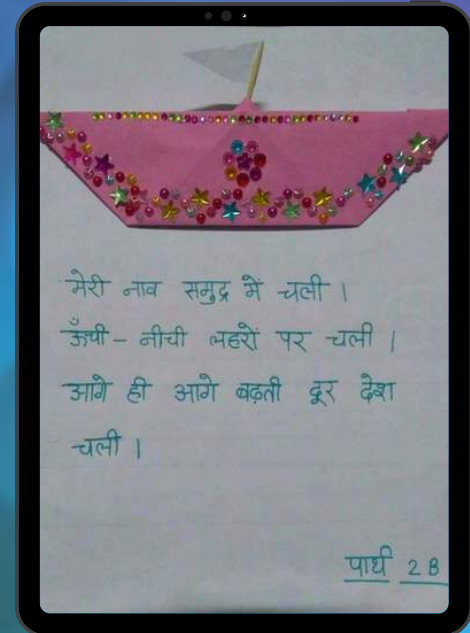 मेरी नाव समुद्र में चली ।
ऊँची - नीची लहरों पर चली ।
आगे ही आगे बढ़ती दूर देश
चली ।
पार्थ 2 B